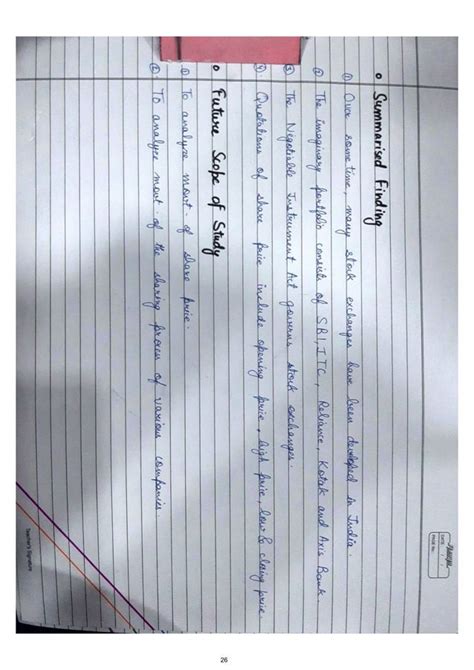 DATE: / /
PAGE No.:
o Summarised Finding
① Over some time, many stock exchanges have been developed in India.
② The imaginary portfolio consists of SBI, ITC, Reliance, Kotak and Axis Bank.
③ The Negotiable Instrument Act governs stock exchanges
④ Quotations of share price include opening price, high price, low & closing price
o Future Scope of Study
① To analyze movt. of share price.
② To analyze movt. of the sharing process of various companies.
Teacher's Signature
26